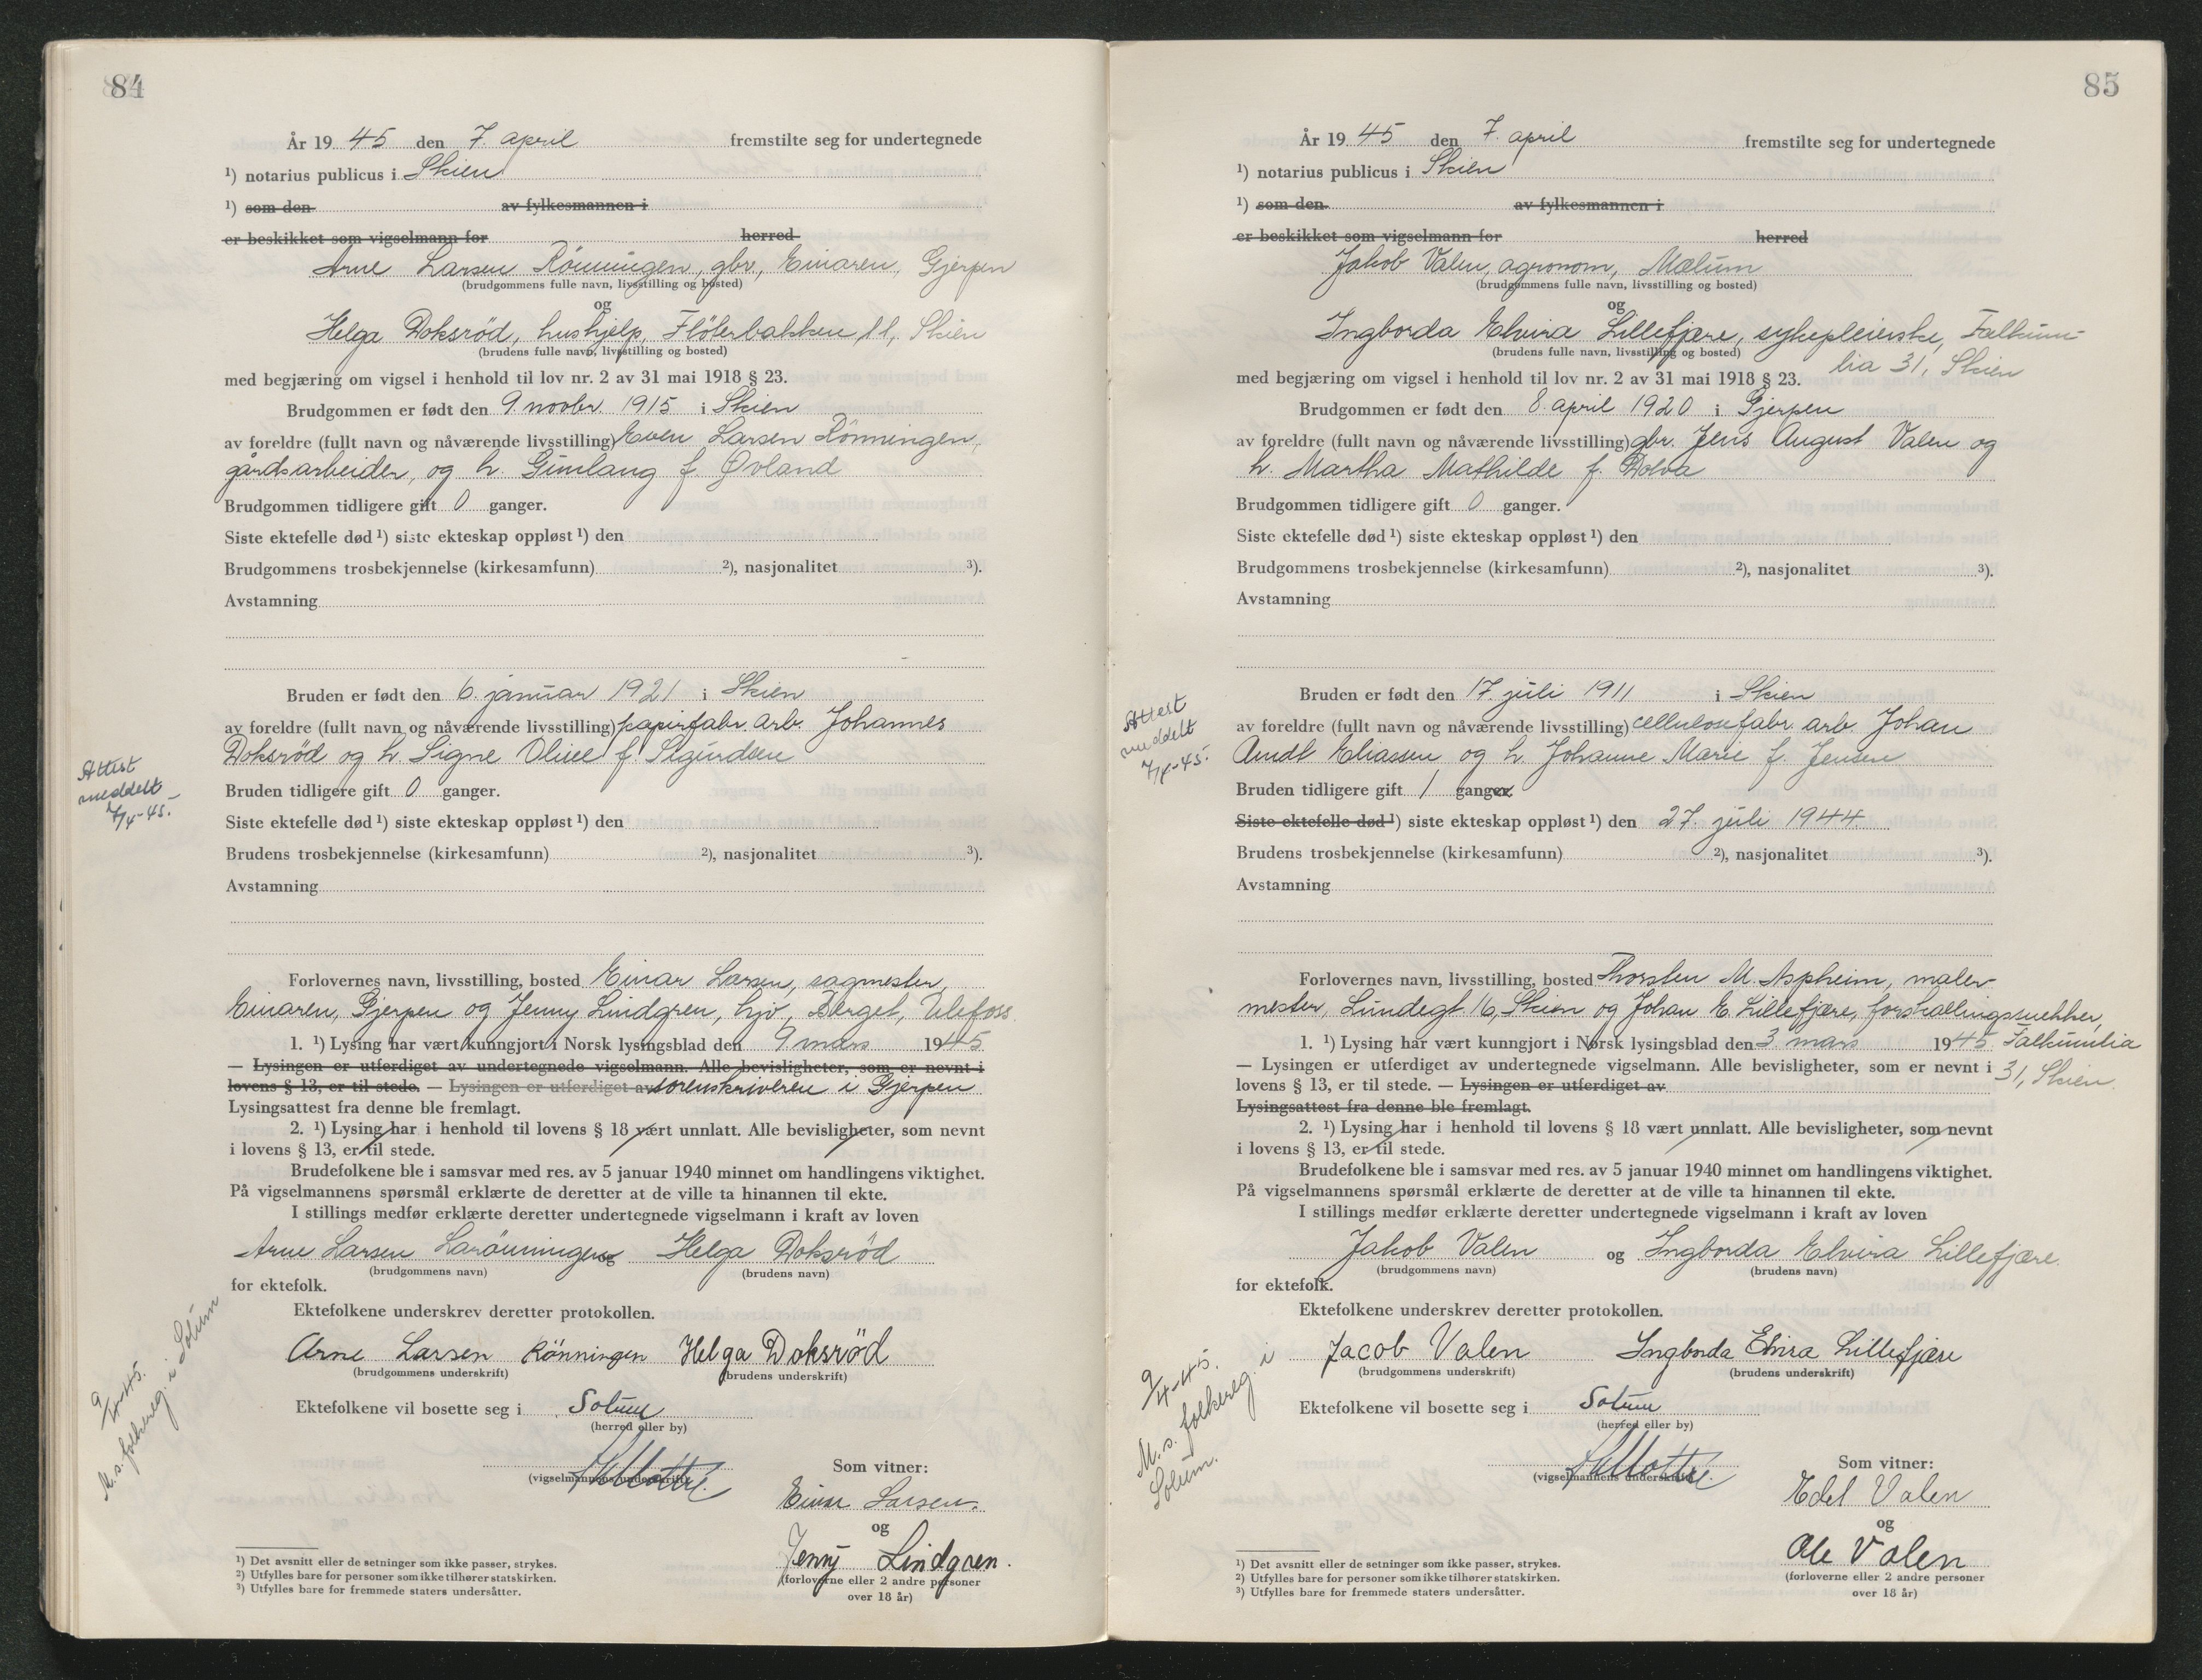 84
År 19 45 den 7. april fremstilte seg for undertegnede
¹) notarius publicus i Skien
¹) som den av fylkesmannen i
er beskikket som vigselmann for herred
Arne Larsen Rönningen, gbr., Einaren, Gjerpen
(brudgommens fulle navn, livsstilling og bosted)
og
Helga Doksröd, hushjelp, Flöterbakken 11, Skien
(brudens fulle navn, livsstilling og bosted)
med begjæring om vigsel i henhold til lov nr. 2 av 31 mai 1918 § 23.
Brudgommen er født den 9 novbr. 1915 i Skien
av foreldre (fullt navn og nåværende livsstilling) Even Larsen Rönningen,
gårdsarbeider, og h. Gunlaug f. Øvland
Brudgommen tidligere gift 0 ganger.
Siste ektefelle død ¹) siste ekteskap oppløst ¹) den
Brudgommens trosbekjennelse (kirkesamfunn) ²), nasjonalitet ³).
Avstamning
Bruden er født den 6. januar 1921 i Skien
av foreldre (fullt navn og nåværende livsstilling) papirfabr. arb. Johannes
Doksröd og h. Signe Oline f. Sigurdsen
Attest
meddelt
7/4-45.
Bruden tidligere gift 0 ganger.
Siste ektefelle død ¹) siste ekteskap oppløst ¹) den
Brudens trosbekjennelse (kirkesamfunn) ²), nasjonalitet ³).
Avstamning
Forlovernes navn, livsstilling, bosted Einar Larsen, sagmester,
Einaren, Gjerpen og Jenny Lindgren, hjv, Berget, Ulefoss.
1. ¹) Lysing har vært kunngjort i Norsk lysingsblad den 9 mars 1945
— Lysingen er utferdiget av undertegnede vigselmann. Alle bevisligheter, som er nevnt i
lovens § 13, er til stede. — Lysingen er utferdiget av sorenskriveren i Gjerpen
Lysingsattest fra denne ble fremlagt.
2. ¹) Lysing har i henhold til lovens § 18 vært unnlatt. Alle bevisligheter, som nevnt
i lovens § 13, er til stede.
Brudefolkene ble i samsvar med res. av 5 januar 1940 minnet om handlingens viktighet.
På vigselmannens spørsmål erklærte de deretter at de ville ta hinannen til ekte.
I stillings medfør erklærte deretter undertegnede vigselmann i kraft av loven
Arne Larsen Larönningen og Helga Doksröd
(brudgommens navn) (brudens navn)
for ektefolk.
Ektefolkene underskrev deretter protokollen.
Arne Larsen Rönningen Helga Doksröd
(brudgommens underskrift) (brudens underskrift)
Ektefolkene vil bosette seg i Solum
(herred eller by)
9/4-45.
M. s. folkereg. i Solum
(vigselmannens underskrift)
Som vitner:
Einar Larsen.
og
Jenny Lindgren.
(forloverne eller 2 andre personer
over 18 år)
¹) Det avsnitt eller de setninger som ikke passer, strykes.
²) Utfylles bare for personer som ikke tilhører statskirken.
³) Utfylles bare for fremmede staters undersåtter.
85
År 19 45 den 7. april fremstilte seg for undertegnede
¹) notarius publicus i Skien
¹) som den av fylkesmannen i
er beskikket som vigselmann for herred
Jakob Valen, agronom, Mælum
(brudgommens fulle navn, livsstilling og bosted)
og
Ingborda Elvira Lillefjære, sykepleierske, Falkum-
lia 31, Skien
(brudens fulle navn, livsstilling og bosted)
med begjæring om vigsel i henhold til lov nr. 2 av 31 mai 1918 § 23.
Brudgommen er født den 8. april 1920 i Gjerpen
av foreldre (fullt navn og nåværende livsstilling) gbr. Jens August Valen og
h. Martha Mathilde f. Dolva
Brudgommen tidligere gift 0 ganger.
Siste ektefelle død ¹) siste ekteskap oppløst ¹) den
Brudgommens trosbekjennelse (kirkesamfunn) ²), nasjonalitet ³).
Avstamning
Bruden er født den 17. juli 1911 i Skien
av foreldre (fullt navn og nåværende livsstilling) cellulosefabr. arb. Johan
Arndt Eliassen og h. Johanne Marie f. Jensen
Attest
meddelt
7/4-45.
Bruden tidligere gift 1 ganger
Siste ektefelle død ¹) siste ekteskap oppløst ¹) den 27. juli 1944.
Brudens trosbekjennelse (kirkesamfunn) ²), nasjonalitet ³).
Avstamning
Forlovernes navn, livsstilling, bosted Thorsten M. Aspheim, maler-
mester, Lundegt 16, Skien og Johan E. Lillefjære, forskallingssnekker,
Falkumlia
31, Skien.
1. ¹) Lysing har vært kunngjort i Norsk lysingsblad den 3 mars 1945
— Lysingen er utferdiget av undertegnede vigselmann. Alle bevisligheter, som er nevnt i
lovens § 13, er til stede. — Lysingen er utferdiget av
Lysingsattest fra denne ble fremlagt.
2. ¹) Lysing har i henhold til lovens § 18 vært unnlatt. Alle bevisligheter, som nevnt
i lovens § 13, er til stede.
Brudefolkene ble i samsvar med res. av 5 januar 1940 minnet om handlingens viktighet.
På vigselmannens spørsmål erklærte de deretter at de ville ta hinannen til ekte.
I stillings medfør erklærte deretter undertegnede vigselmann i kraft av loven
Jakob Valen og Ingborda Elvira Lillefjære.
(brudgommens navn) (brudens navn)
for ektefolk.
Ektefolkene underskrev deretter protokollen.
Jacob Valen Ingborda Elvira Lillefjære
(brudgommens underskrift) (brudens underskrift)
Ektefolkene vil bosette seg i Solum
(herred eller by)
9/4-45.
M. s. folkereg. i
Solum.
(vigselmannens underskrift)
Som vitner:
Edel Valen
og
Ole Valen
(forloverne eller 2 andre personer
over 18 år)
¹) Det avsnitt eller de setninger som ikke passer, strykes.
²) Utfylles bare for personer som ikke tilhører statskirken.
³) Utfylles bare for fremmede staters undersåtter.